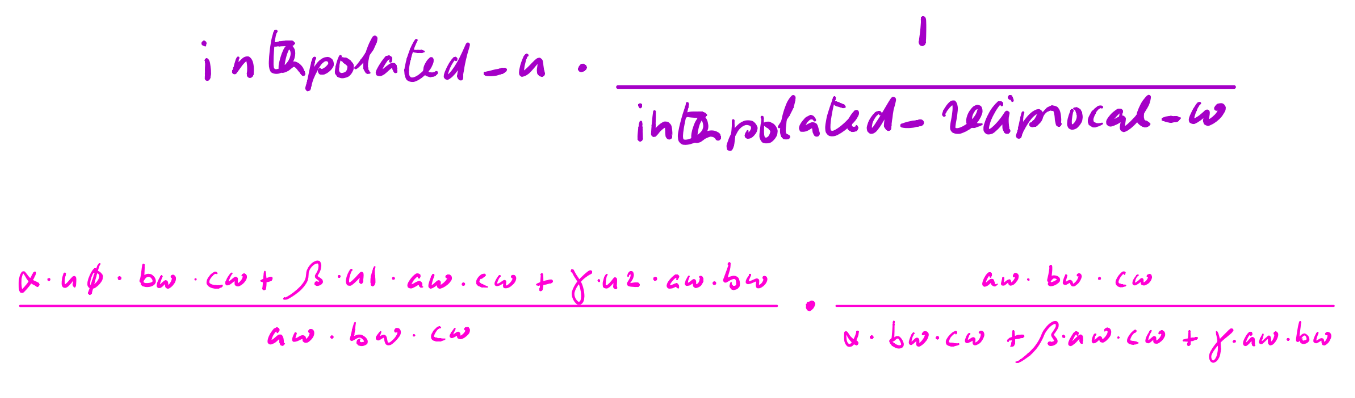 interpolated_u · 1 / interpolated_reciprocal_w
α·u0·bw·cw + β·u1·aw·cw + γ·u2·aw·bw / aw·bw·cw · aw·bw·cw / α·bw·cw + β·aw·cw + γ·aw·bw